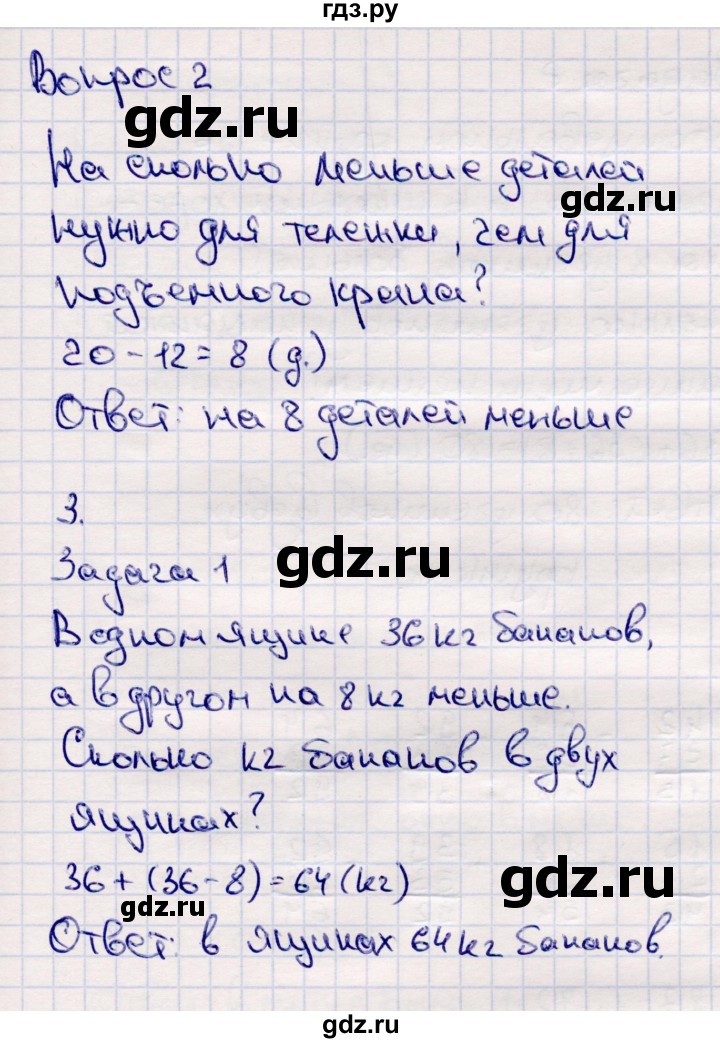 гдз.ру
Вопрос 2
gdz.ru
На сколько меньше деталей
gdz.ru
нужно для тележки, чем для
подъемного крана?
20 - 12 = 8 (д.)
Ответ: на 8 деталей меньше
3.
gdz.ru
Задача 1
В одном ящике 36 кг бананов,
а в другом на 8 кг меньше.
Сколько кг бананов в двух
ящиках?
36 + (36 - 8) = 64 (кг)
gdz.ru
gdz.ru
Ответ: в ящиках 64 кг бананов.
gdz.ru